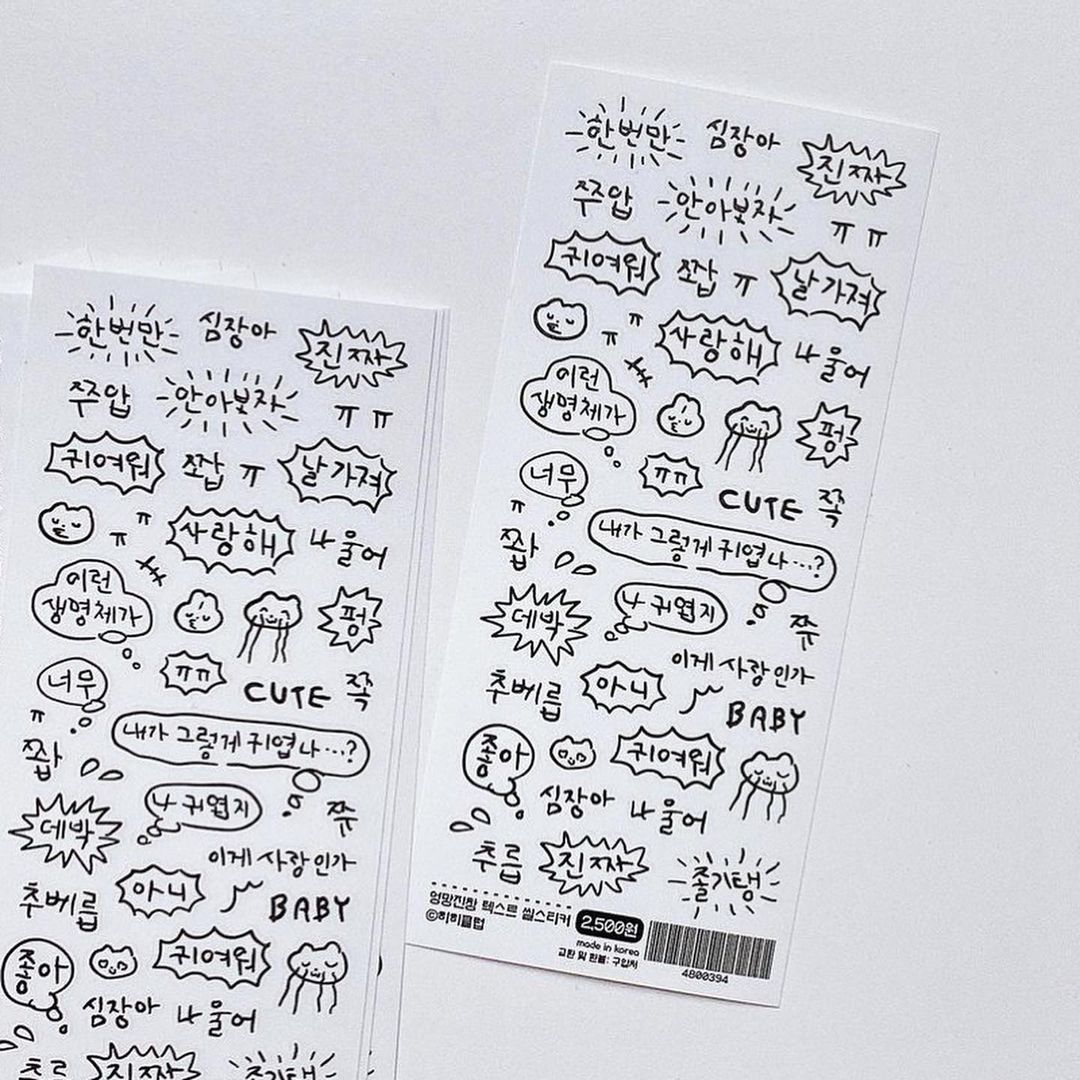 한번만 심장아 진짜
쭈압 안아보자 ㅠ ㅠ
귀여워 쪼압 ㅠ 날가져
ㅠ ㅠ 사랑해 나 울어
이런
생명체가
펑
너무 ㅠㅠ CUTE 쪽
ㅠ
쫩
내가 그렇게 귀엽나...?
나 귀엽지
데박 쮸
이게 사랑인가
추베릅 아니 BABY
좋아 귀여워
심장아 나 울어
추릅 진짜 졸기탱
엉망진창 텍스트 씰스티커 2,500원
©히히클럽
made in korea
교환 및 환불: 구입처
4800394
한번만 심장아 진짜
쭈압 안아보자 ㅠ ㅠ
귀여워 쪼압 ㅠ 날가져
ㅠ ㅠ 사랑해 나 울어
이런
생명체가
펑
너무 ㅠㅠ CUTE 쪽
ㅠ
쫩
내가 그렇게 귀엽나...?
나 귀엽지
데박 쮸
이게 사랑인가
추베릅 아니 BABY
좋아 귀여워
심장아 나 울어
진짜